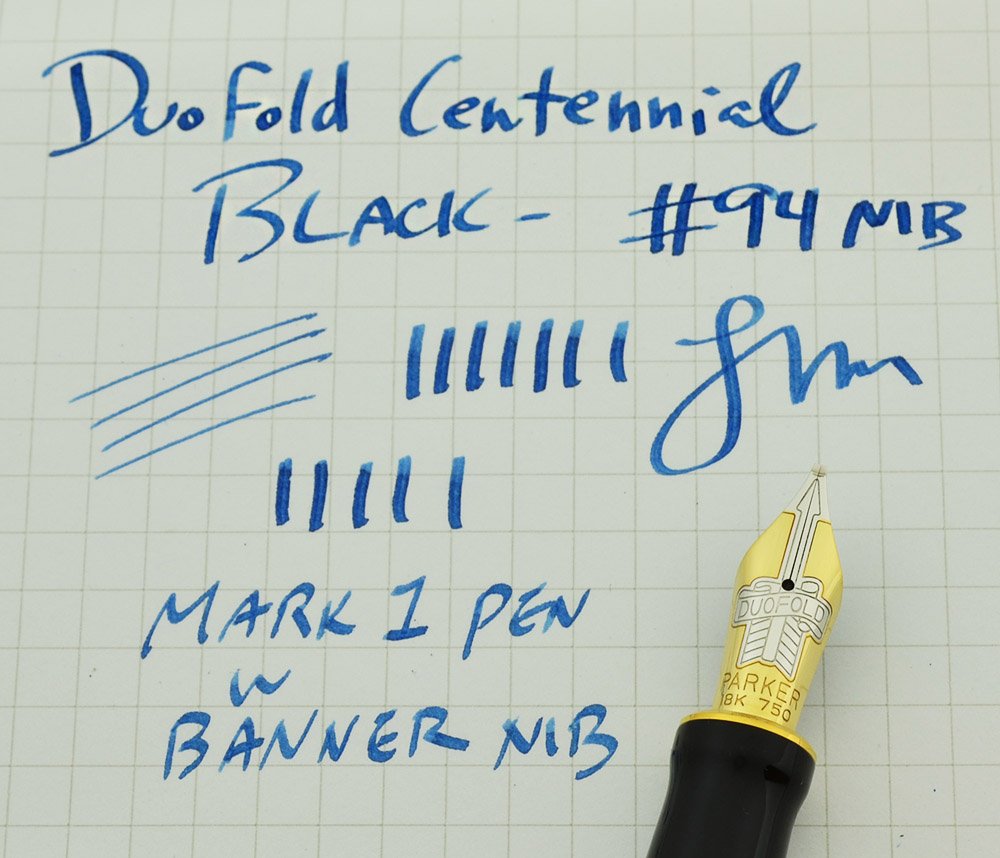 DuoFold Centennial
BLACK - #94 NIB
MARK I PEN
w
BANNER NIB
DUOFOLD
PARKER
18K 750